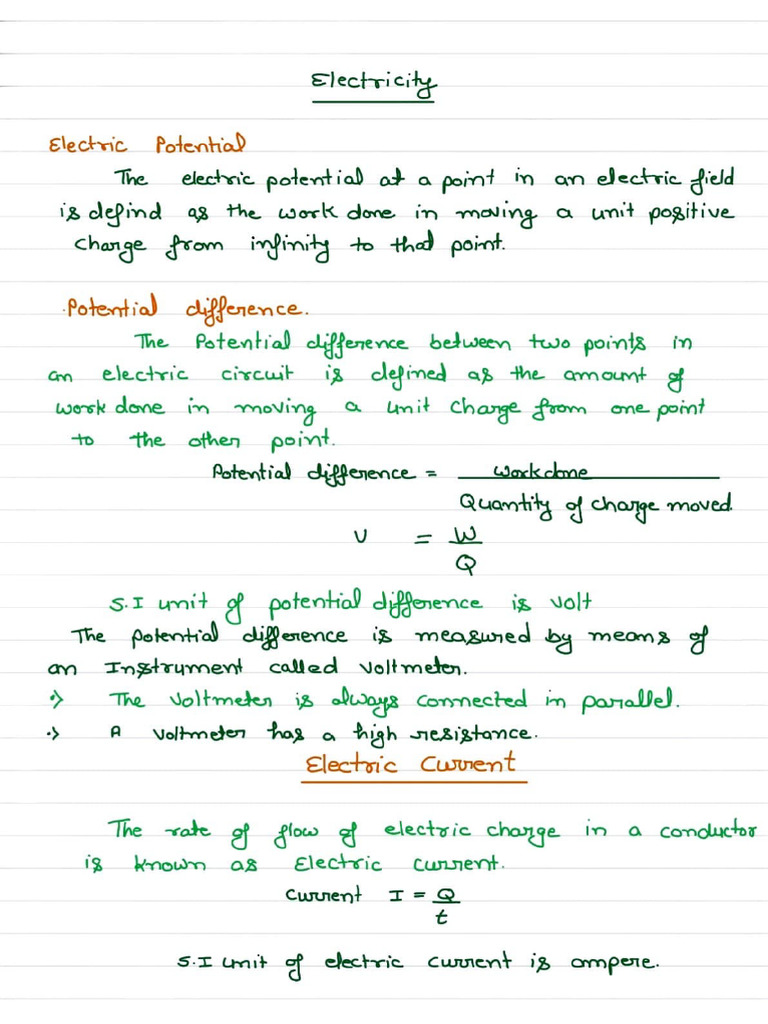 Electricity
Electric Potential
The electric potential at a point in an electric field
is defind as the work done in moving a unit positive
charge from infinity to that point.
Potential difference.
The Potential difference between two points in
an electric circuit is defined as the amount of
work done in moving a unit charge from one point
to the other point.
Potential difference = workdone
Quantity of charge moved.
V = W
Q
S.I unit of potential difference is volt
The potential difference is measured by means of
an Instrument called voltmeter.
·> The voltmeter is always connected in parallel.
·> A voltmeter has a high resistance.
Electric Current
The rate of flow of electric charge in a conductor
is known as Electric current.
Current I = Q
t
S.I unit of electric current is ampere.